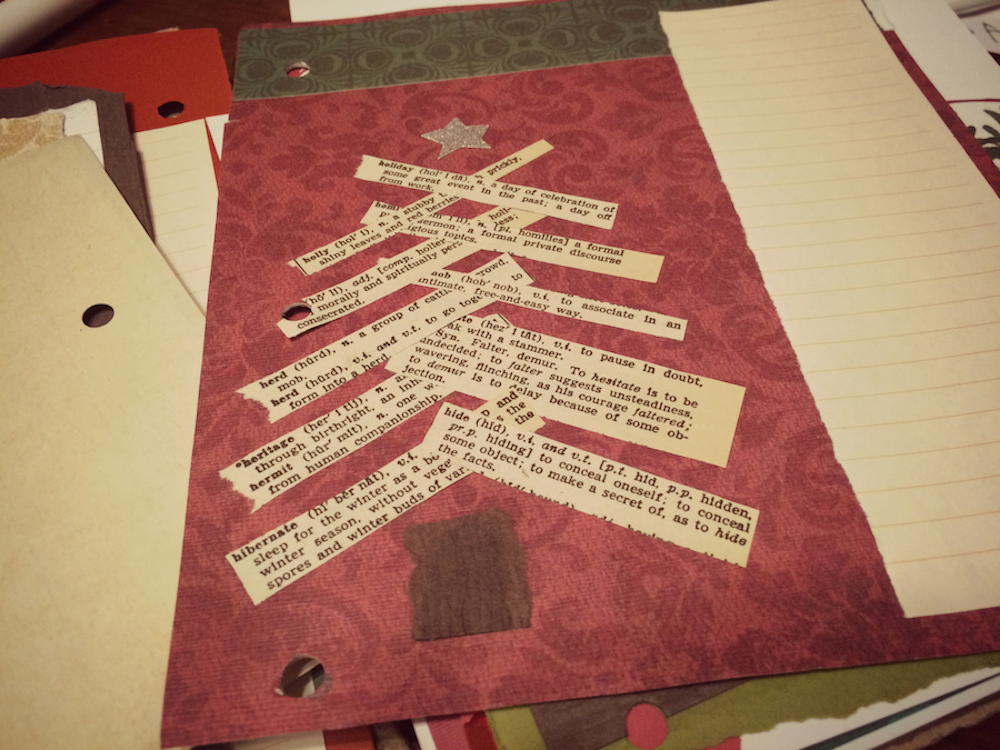 prickly,
holiday (hol' i dā), n. a day of celebration of
some great event in the past; a day off
from work.
holly (hol' i), n. a stubby
shiny leaves and red berries
[pl. homilies] a formal
sermon; a formal private discourse
topics.
less;
adj. [comp. holier
morally and spiritually
consecrated.
crowd.
to
(hob' nob), v.i. to associate in an
intimate, free-and-easy way.
herd (hûrd), n. a group of
mob.
herd (hûrd), v.i. and v.t. to go
form into a herd.
(hez' i tāt), v.i. to pause in doubt,
with a stammer.
Syn. Falter, demur. To hesitate is to be
undecided; to falter suggests unsteadiness,
wavering, flinching, as his courage faltered;
to demur is to delay because of some ob-
jection.
*heritage (her' i tij), n.
through birthright, an
hermit (hûr' mit), n. one
from human companionship.
and
the
the
hide (hīd), v.i. and v.t. [p.t. hid, p.p. hidden,
pr.p. hiding] to conceal oneself; to conceal
some object; to make a secret of, as to hide
the facts.
hibernate (hī' bēr nāt), v.i.
sleep for the winter as a
winter season, without
spores and winter buds of